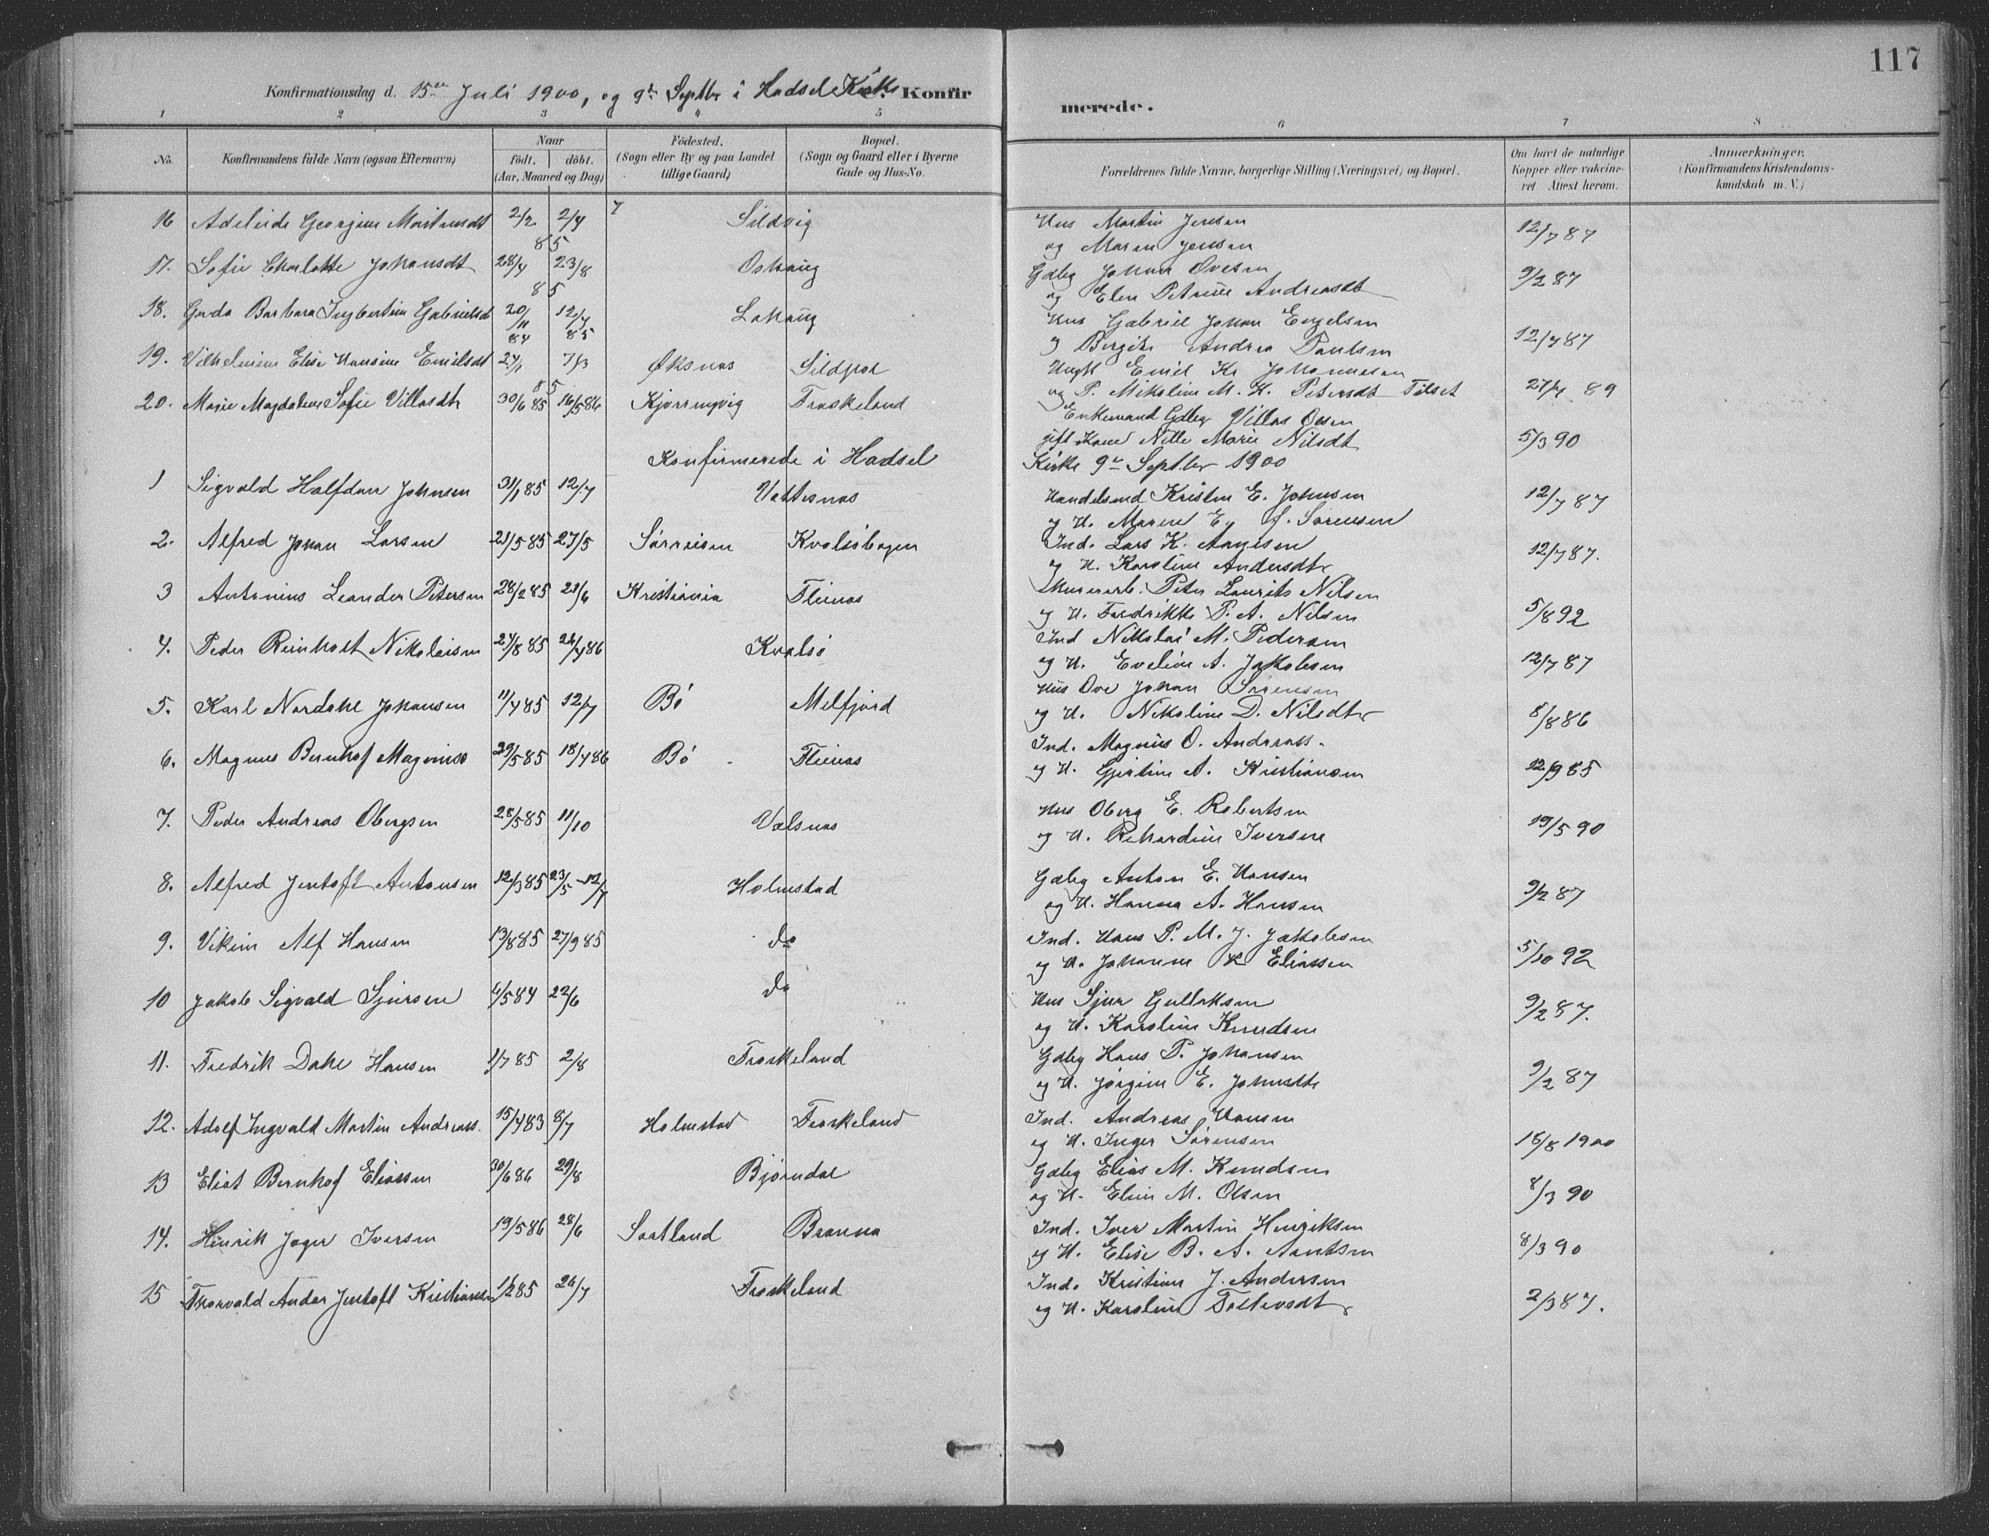 117
Konfirmationsdag d. 15de Juli 1900, og 9de Septbr i Hadsel Kirke. Konfirmerede.
1 2 3 4 5 6 7 8
No. Konfirmandens fulde Navn (ogsaa Efternavn) Naar födt. döbt. (Aar, Maaned og Dag) Födested. (Sogn eller By og paa Landet tillige Gaard) Bopæl. (Sogn og Gaard eller i Byerne Gade og Hus-No. Forældrenes fulde Navne, borgerlige Stilling (Næringsvei) og Bopæl. Om havt de naturlige Kopper eller vakcineret. Attest herom. Anmærkninger. (Konfirmandens Kristendomskundskab m. V.)
16 Adeleide Georgine Martinsdt 2/2 2/4 85 Sildvig Hus Martin Jensen 12/7 87
og Maren Jensen
17. Sofie Charlotte Johansdt 28/4 23/8 85 Oshaug Gdbg Johan Ovesen 9/2 87
og Elen Petrine Andreasdt
18. Gerda Barbara Ingbertine Gabrielsdt 20/11 84 12/7 85 Lahaug Hus Gabriel Johan Engelsen 12/7 87
og Bergite Andrea Paulsen
19. Vilhelmine Elise Hansine Emilsdt 27/1 7/3 85 Øksnes Sildpol Ungk Emil Kr Johannesen
og P. Mikoline M. K. Petersdt Tilset 27/7 89
20. Marie Magdalene Sofie Villasdt 30/6 85 16/5 86 Kjerringvig Froskeland Enkemand Gdbg Villas Olsen
gift Kone Nille Marie Nilsdt 5/3 90
Konfirmerede i Hadsel Kirke 9de Septbr 1900
1 Sigvald Halfdan Johnsen 31/1 85 12/7 Vottesnes Handelsmd Kristen E. Johnsen 12/7 87
og H. Maren E. S. Sørensen
2. Alfred Johan Larsen 21/5 85 27/5 Sørreisen Kvalsøbogen Ind. Lars K. Aanesen 12/7 87.
og H. Karoline Andersdtr
3 Antonius Leander Petersen 28/2 85 21/6 Kristiania Fleines Murerarb. Peter Laurits Nilsen
og H. Fredrikke P. A. Nilsen 5/8 92
4. Peder Reinholt Nikolaisen 27/8 85 26/4 86 Kvalsø Ind Nikolai M. Pedersen
og H. Eveline A. Jakobsen 12/7 87
5. Karl Nordahl Johansen 11/4 85 12/7 Bø Melfjord Hus Ove Johan Sørensen
og H. Nikoline D. Nilsdtr 8/8 86
6. Magnus Bernhof Magnuss 29/5 85 18/4 86 Bø Fleines Ind. Magnus O. Andreass.
og H. Gjertine A. Kristiansen 12/9 85
7. Peder Andreas Obergsen 28/5 85 11/10 Valsnes Hus Oberg E. Robertsen
og H. Rikardine Iversen 19/5 90
8. Alfred Jentoft Antonsen 12/3 85 23/5 - 12/7 Holmstad Gdbg Anton E. Hansen
og H. Hanna A. Hansen 9/2 87
9. Vikin Alf Hansen 19/8 85 27/9 85 do Ind. Hans P. M. J. Jakobsen
og H. Johanne K Eliassen 5/10 92
10 Jakob Sigvald Sjursen 4/5 84 22/6 do Hus Sjur Gullaksen 9/2 87.
og H. Karoline Knudsen
11. Fredrik Dahl Hansen 1/7 85 2/8 Froskeland Gdbg Hans P. Johansen
og H. Jørgine E. Johnsdtr 9/2 87
12. Adolf Ingvald Martin Andreass. 15/4 83 8/7 Holmstad Froskeland Ind. Andreas Hansen
og H. Inger Sørensen 16/8 1900
13 Eliot Bernhof Eliassen 30/6 86 29/8 Bjørndal Gdbg Elias M. Knudsen
og H. Eline M. Olsen 8/3 90
14. Henrik Jager Iversen 19/5 86 28/6 Sortland Brenna Ind. Iver Martin Henriksen
og H. Elise B. A. Aantsen 8/3 90
15 Thorvald Andor Jentoft Kristiansen 1/2 85 26/7 Froskeland Ind. Kristian J. Andersen
og H. Karoline Tollevsdtr 2/3 87.